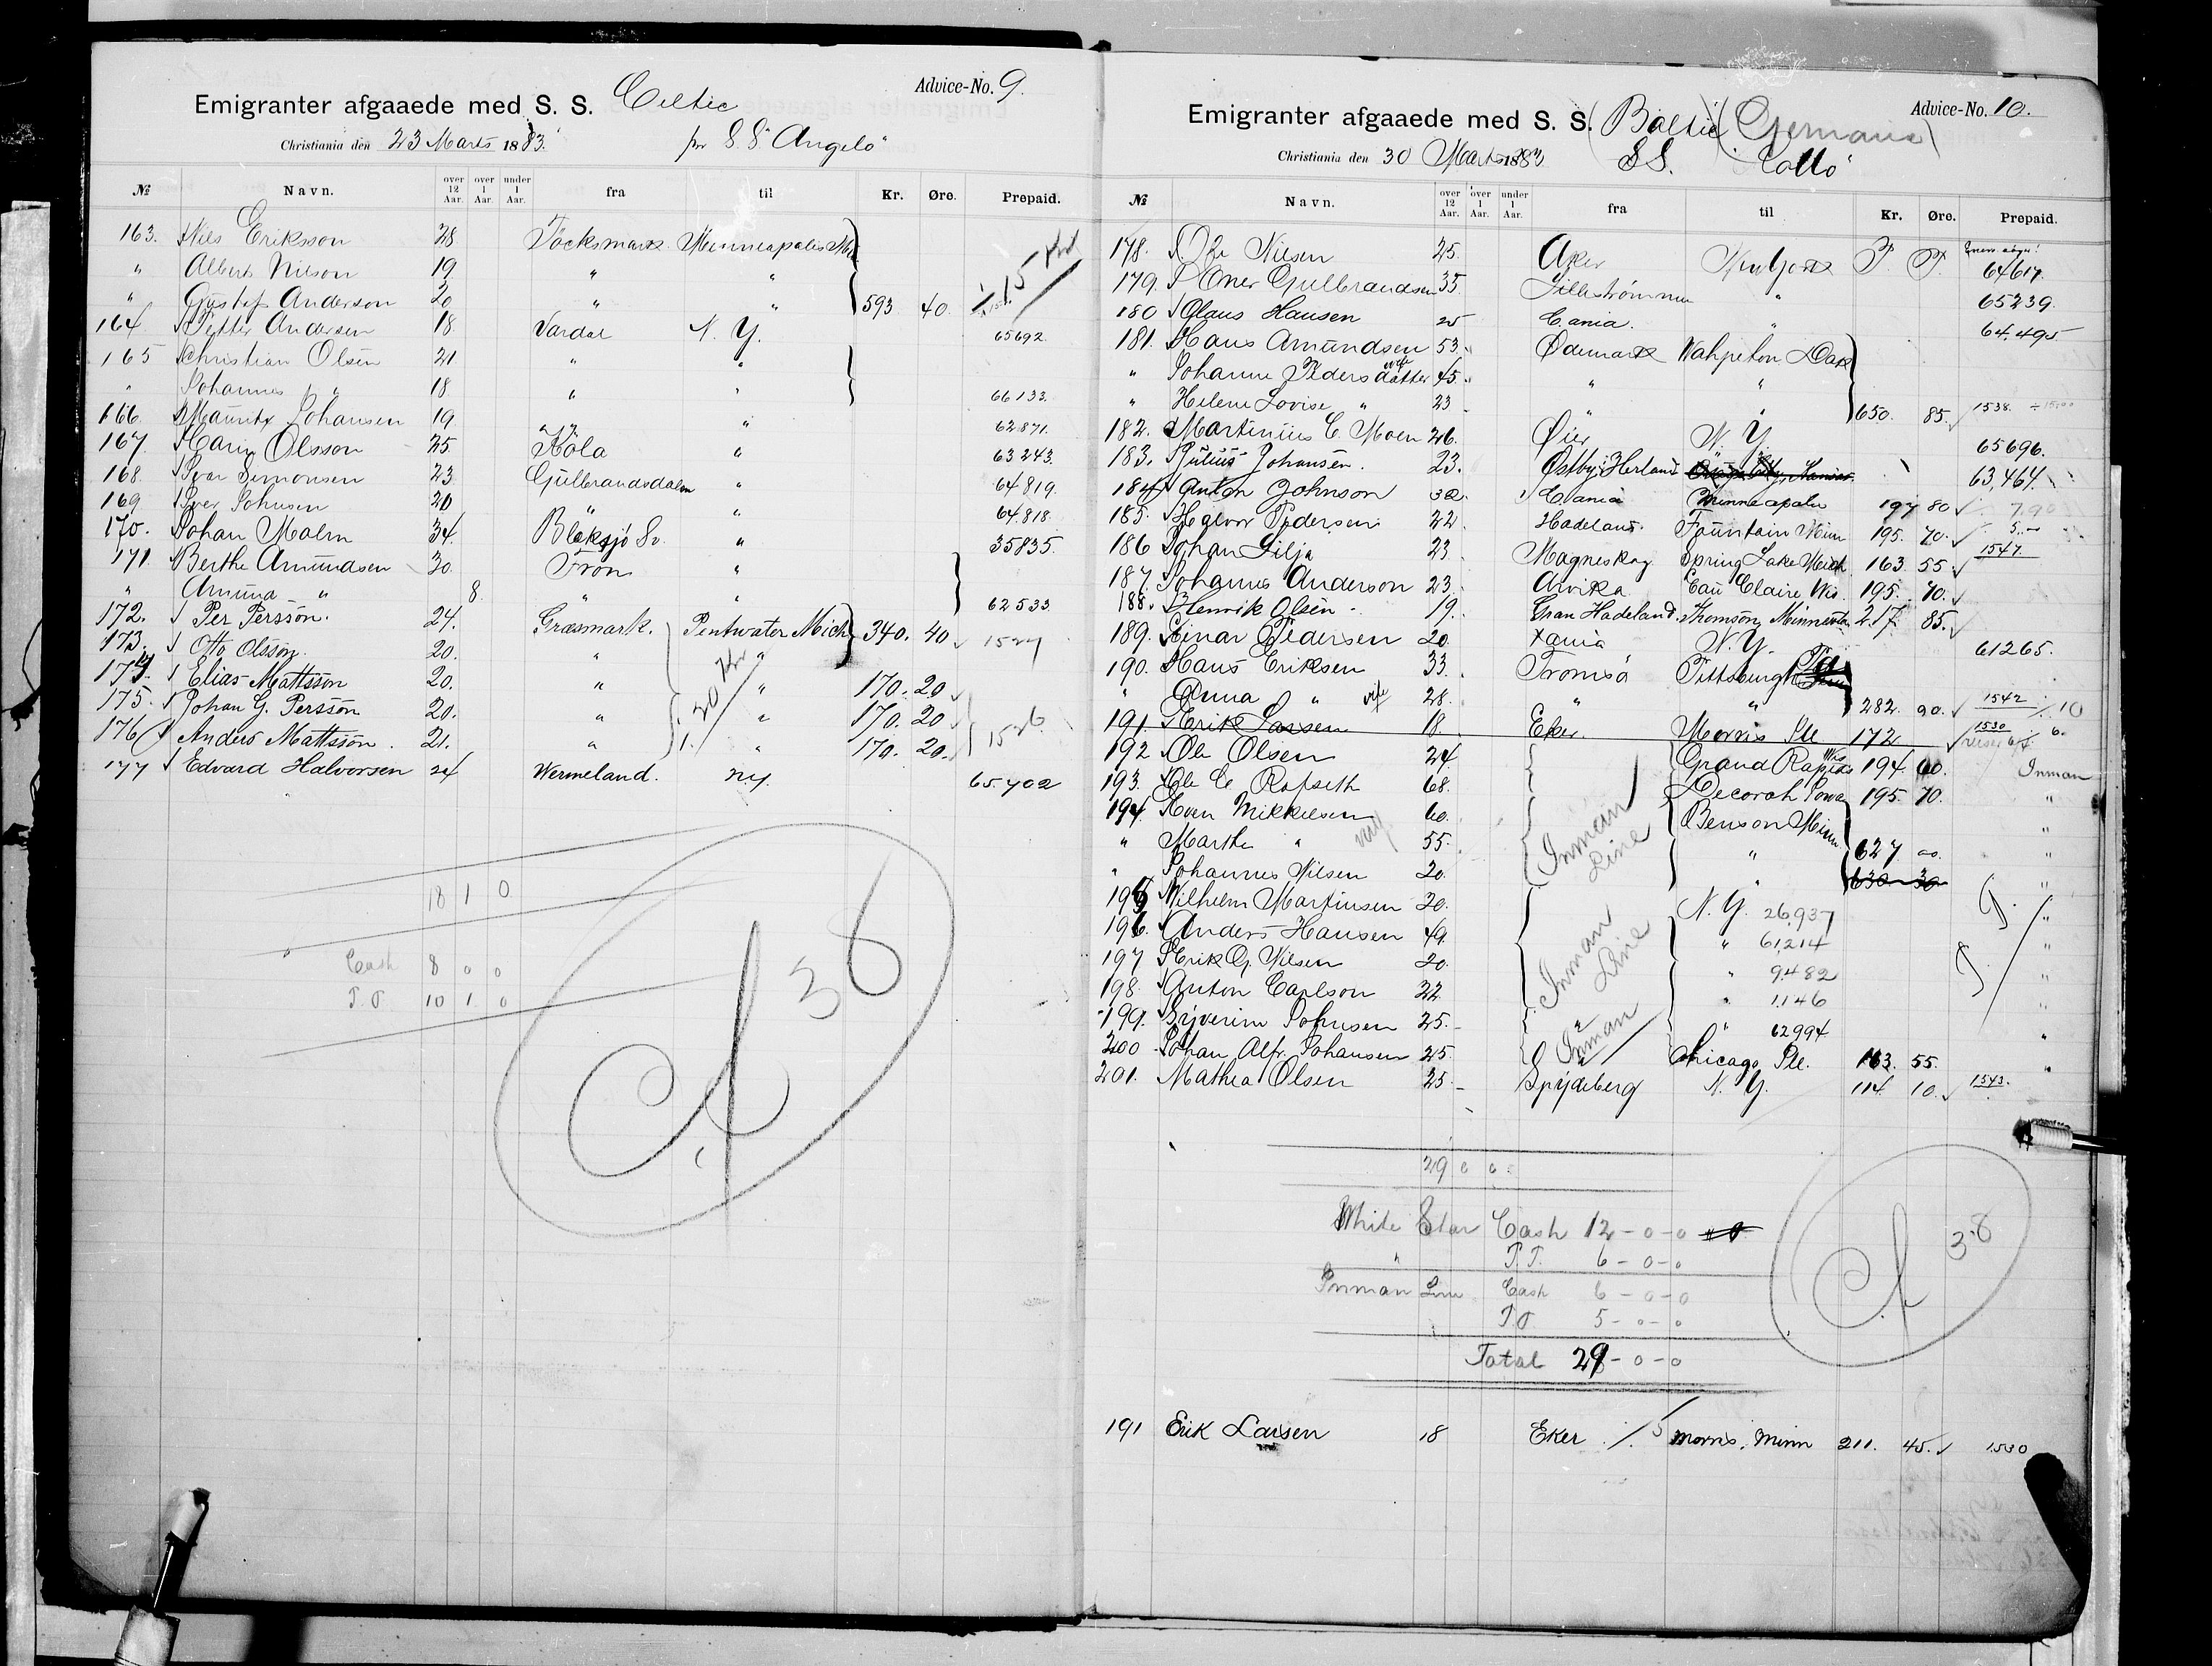 Advice-No. 9.
Emigranter afgaaede med S. S. Celtic
Christiania den 23 Marts 1883. pr S.S "Angelo"
№ Navn. over 12 Aar. over 1 Aar. under 1 Aar. fra til Kr. Øre. Prepaid.
163. Nils Eriksson 28 Töcksmark Minneapolis Min
" Albert Nilson 19 " "
" Gustaf Anderson 20 " " 593 40 ./. 15
164 Petter Andersen 18 Vardal N. Y. 65692
165 Christian Olsen 21 " "
" Johannes " 18 " " 66133
166. Mauritz Johansen 19 " " 62871.
167. Karin Olsson 25 Köla " 63243.
168. Ivar Simonsen 23 Gulbrandsdalen " 64819.
169 Iver Johnsen 20 " " 64.818
170. Johan Malm 34 Bläksjö Sv. " 35835.
171 Berthe Amundsen 30 Fron "
" Amund " 8. " " 62533
172. Per Persson. 24. Græsmark. Pentwater Mich 340. 40 1527
173. Otto Olsson 20. " "
174. Elias Mattsson 20. " " 170. 20
175. Johan G. Persson 20. " " 170. 20
176 Anders Mattsson. 21. " " 170. 20. 1526
177 Edvard Halvorsen 24 Wermeland. N.y. 65.702
18 1 0
Cash 8 0 0
P.P. 10 1 0
38
Advice-No. 10.
Emigranter afgaaede med S. S. (Baltic) (Germanic)
Christiania den 30 Marts 1883 SS. "Rollo"
№ Navn. over 12 Aar. over 1 Aar. under 1 Aar. fra til Kr. Øre. Prepaid.
178. Ole Nilsen 25. Aker New York P. P. 64617.
179. Oner Gulbrandsen 35. Lillestrømmen " 65239.
180 Olaus Hansen 25 C.ania. " 64.495
181. Hans Amundsen 53. Ødemark Wahpeton Dak
" Johanne Pedersdatter wife 45. " "
" Helene Lovise " 23 " " 650. 85. 1538. ÷ 15.00
182. Martinius C. Moen 26. Øier N. Y. 65696.
183. Julius Johansen. 23. Østby i Herland " 63.464.
184 Anton Johnson 32. C.ania Minneapolis 197 80 7.90
185. Halvor Pedersen 22. Hadeland. Fountain Minn 195. 70. 5.—
186 Johan Lilja 23 Magneskog Spring Lake Mich 163 55 1547.
187. Johannes Anderson 23. Arvika Eau Claire Wis. 195. 70.
188. Henrik Olsen 19. Gran Hadeland. Thomson Minnesota 217 85.
189. Einar Pedersen 20 Xania N. Y. 61265.
190. Hans Eriksen 33. Tromsö Pittsburgh Pa
" Anna " wife 28. " " 282. 90. 1542 ./. 10
191. Erik Larsen 18. Eker. Morris Ill. 172 1530
192 Ole Olsen 24 Grand Rapids Wis 194. 60. Inman
193. Ole C Rofseth 68. Decorah Iowa 195. 70. "
194. Even Mikkelsen 60. Benson Minn "
" Marthe " 55. Inman Line " 627 00. "
" Johannes Nilsen 20. " 630 30 "
195 Wilhelm Martinsen 20. N. Y. 26,937 P. "
196. Anders Hansen 49. " 61,214 "
197 Erik G. Nilsen 20. Inman Line " 9,482 P. "
198. Anton Carlson 22 " 1,146 "
199. Syverin Johnsen 25. " 62994 "
200 Johan Alfr. Johansen 25 Inman Chicago Ill. 163. 55. "
201. Mathea Olsen 25 Spydeberg N. Y. 114 10. 1543.
29 0 0
White Star Cash 12 - 0 - 0
" P.P. 6 - 0 - 0
Inman Line Cash 6 - 0 - 0
P.P. 5 - 0 - 0
Total 29 - 0 - 0
38
191 Erik Larsen 18 Eker ./. 5 Morris, Minn 211. 45. 1530